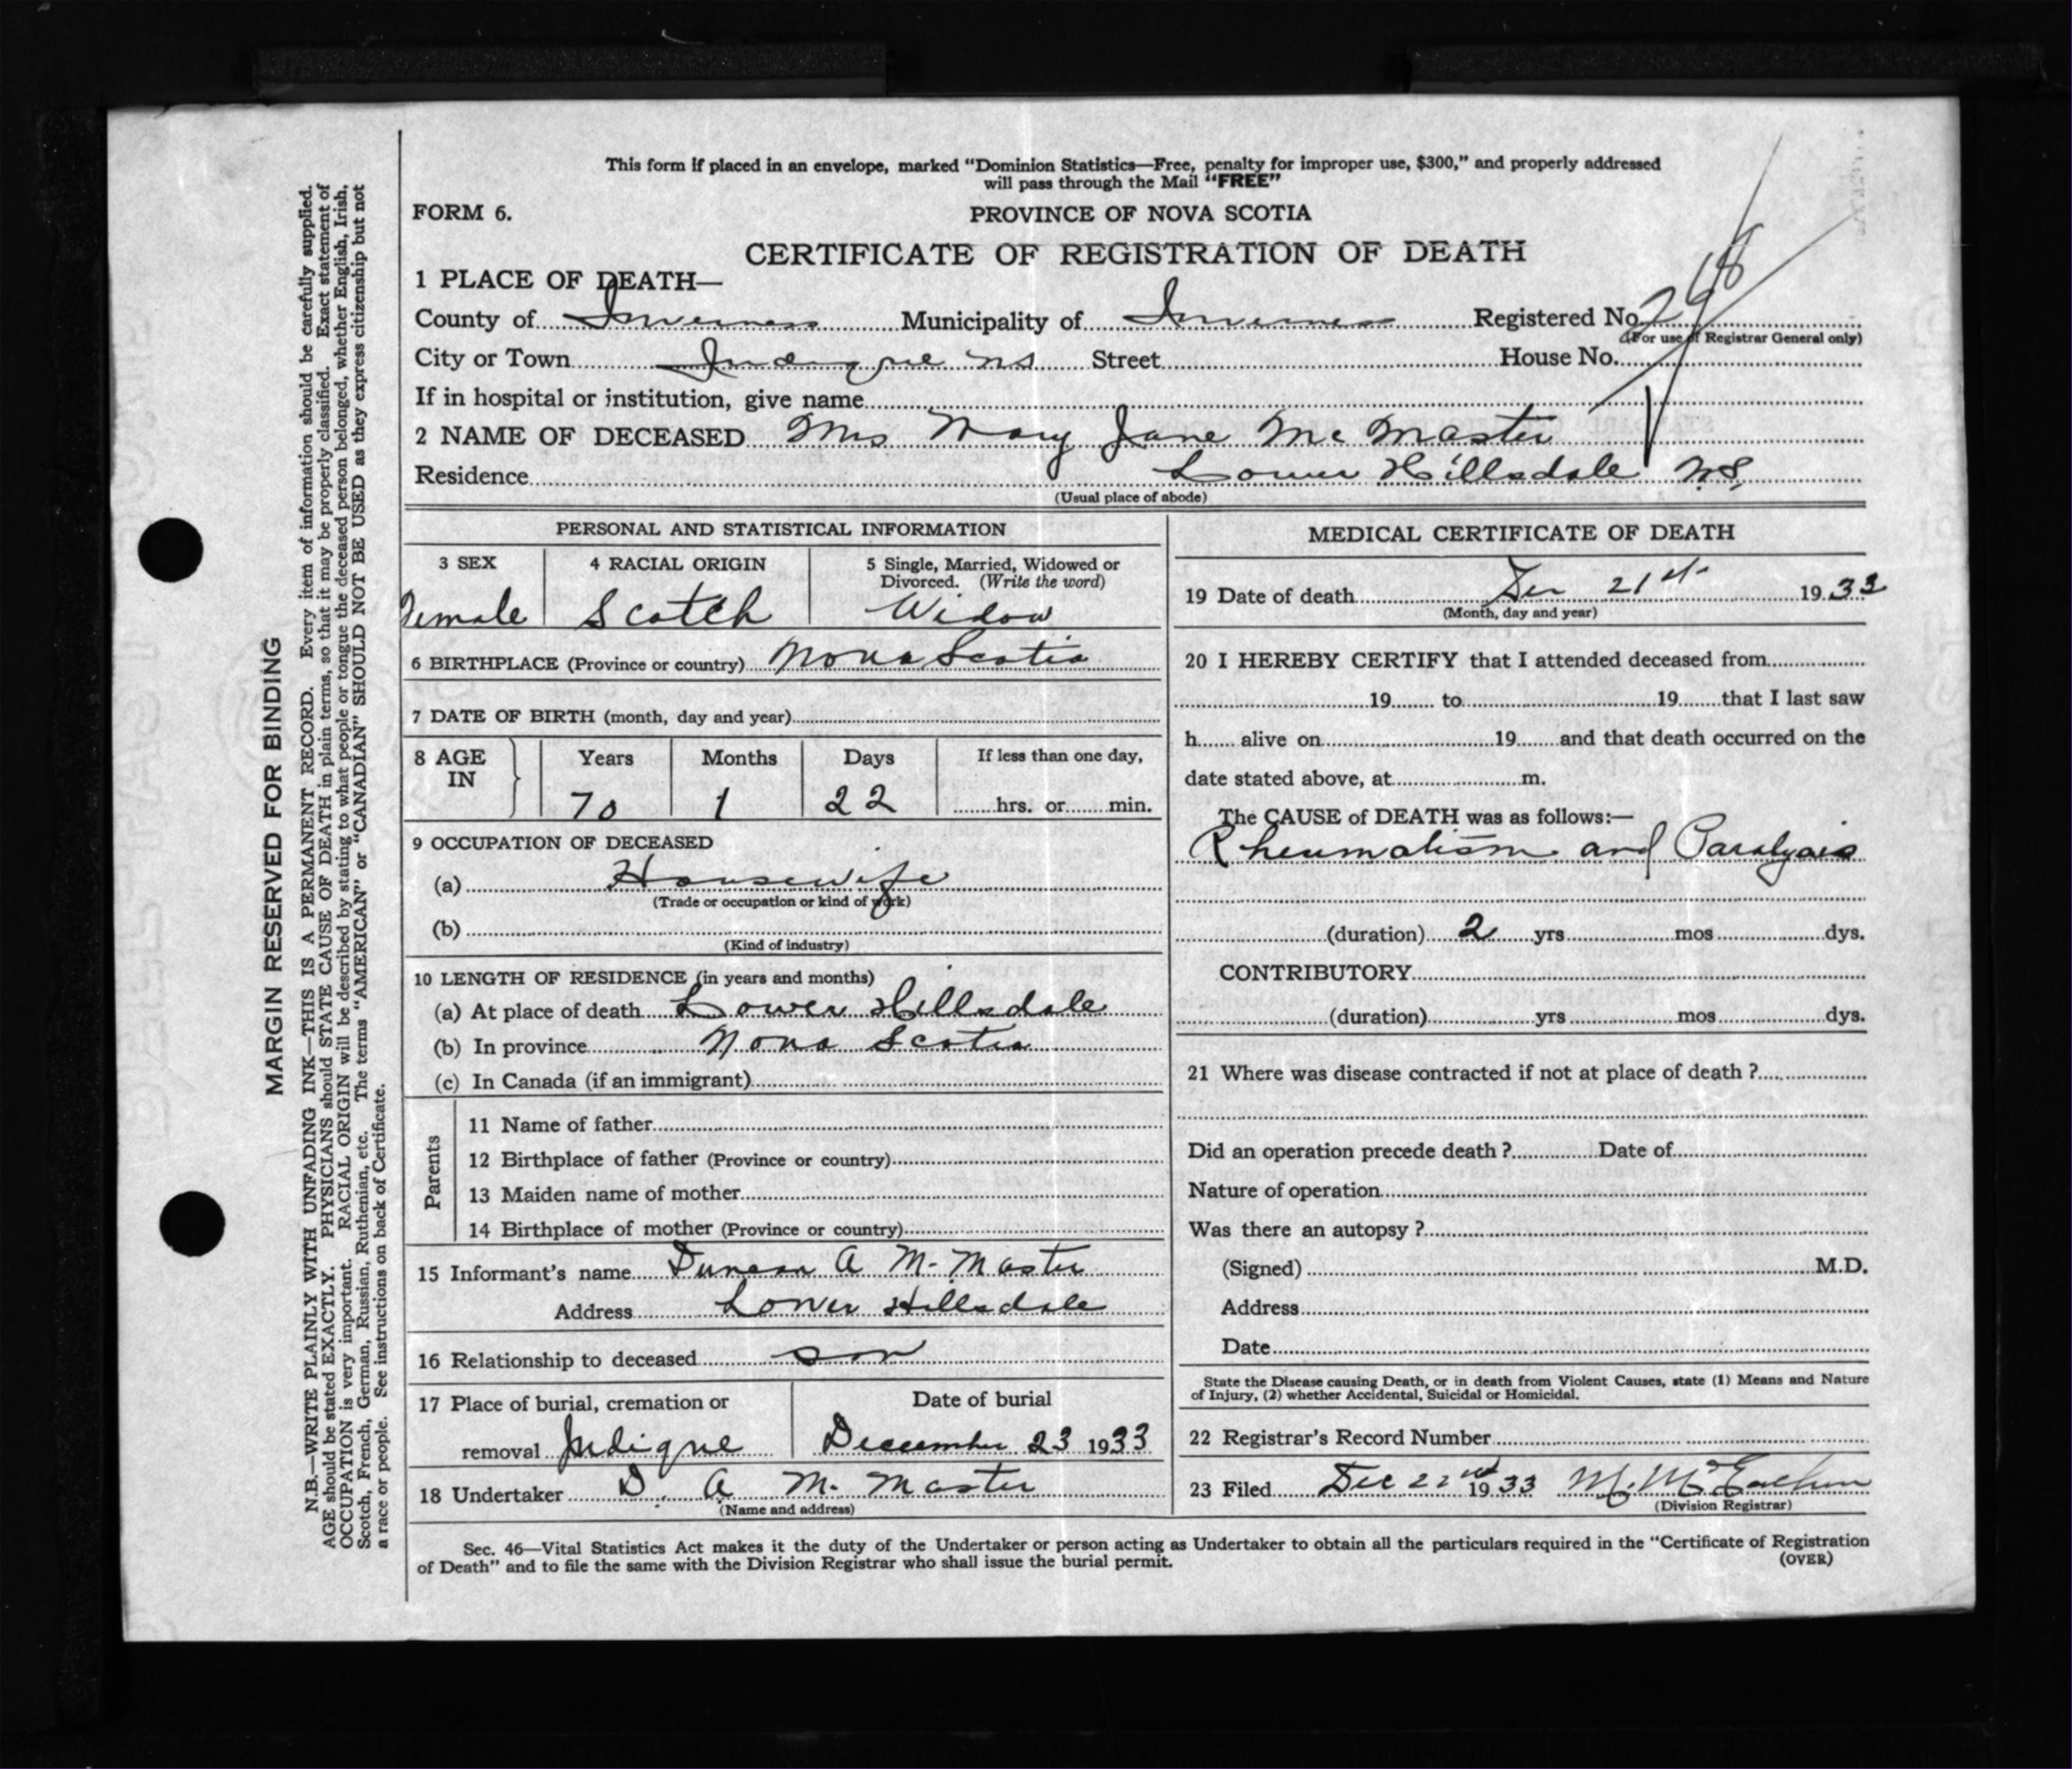 This form if placed in an envelope, marked "Dominion Statistics—Free, penalty for improper use, $300," and properly addressed
will pass through the Mail "FREE"
FORM 6.
PROVINCE OF NOVA SCOTIA
CERTIFICATE OF REGISTRATION OF DEATH
1 PLACE OF DEATH—
County of Inverness Municipality of Inverness Registered No.
(For use of Registrar General only)
City or Town Judique NS Street House No.
If in hospital or institution, give name
2 NAME OF DECEASED Mrs Mary Jane McMaster
Residence Lower Hillsdale N.S.
(Usual place of abode)
PERSONAL AND STATISTICAL INFORMATION
3 SEX
Female
4 RACIAL ORIGIN
Scotch
5 Single, Married, Widowed or
Divorced. (Write the word)
Widow
6 BIRTHPLACE (Province or country) Nova Scotia
7 DATE OF BIRTH (month, day and year)
8 AGE
IN
Years Months Days If less than one day,
70 1 22 hrs. or min.
9 OCCUPATION OF DECEASED
(a) Housewife
(Trade or occupation or kind of work)
(b)
(Kind of industry)
10 LENGTH OF RESIDENCE (in years and months)
(a) At place of death Lower Hillsdale
(b) In province Nova Scotia
(c) In Canada (if an immigrant)
Parents
11 Name of father
12 Birthplace of father (Province or country)
13 Maiden name of mother
14 Birthplace of mother (Province or country)
15 Informant's name Duncan A McMaster
Address Lower Hillsdale
16 Relationship to deceased son
17 Place of burial, cremation or
removal Judique
Date of burial
December 23 1933
18 Undertaker D. A McMaster
(Name and address)
MEDICAL CERTIFICATE OF DEATH
19 Date of death Dec 21st 1933
(Month, day and year)
20 I HEREBY CERTIFY that I attended deceased from
19 to 19 that I last saw
h alive on 19 and that death occurred on the
date stated above, at m.
The CAUSE of DEATH was as follows:—
Rheumatism and Paralysis
(duration) 2 yrs mos dys.
CONTRIBUTORY
(duration) yrs mos dys.
21 Where was disease contracted if not at place of death ?
Did an operation precede death ? Date of
Nature of operation
Was there an autopsy ?
(Signed) M.D.
Address
Date
State the Disease causing Death, or in death from Violent Causes, state (1) Means and Nature
of Injury, (2) whether Accidental, Suicidal or Homicidal.
22 Registrar's Record Number
23 Filed Dec 22nd 1933 McEachern
(Division Registrar)
Sec. 46—Vital Statistics Act makes it the duty of the Undertaker or person acting as Undertaker to obtain all the particulars required in the "Certificate of Registration
of Death" and to file the same with the Division Registrar who shall issue the burial permit.
(OVER)
MARGIN RESERVED FOR BINDING
N.B.—WRITE PLAINLY WITH UNFADING INK—THIS IS A PERMANENT RECORD. Every item of information should be carefully supplied.
AGE should be stated EXACTLY. PHYSICIANS should STATE CAUSE OF DEATH in plain terms, so that it may be properly classified. Exact statement of
OCCUPATION is very important. RACIAL ORIGIN will be described by stating to what people or tongue the deceased person belonged, whether English, Irish,
Scotch, French, German, Russian, Ruthenian, etc. The terms "AMERICAN" or "CANADIAN" SHOULD NOT BE USED as they express citizenship but not
a race or people. See instructions on back of Certificate.